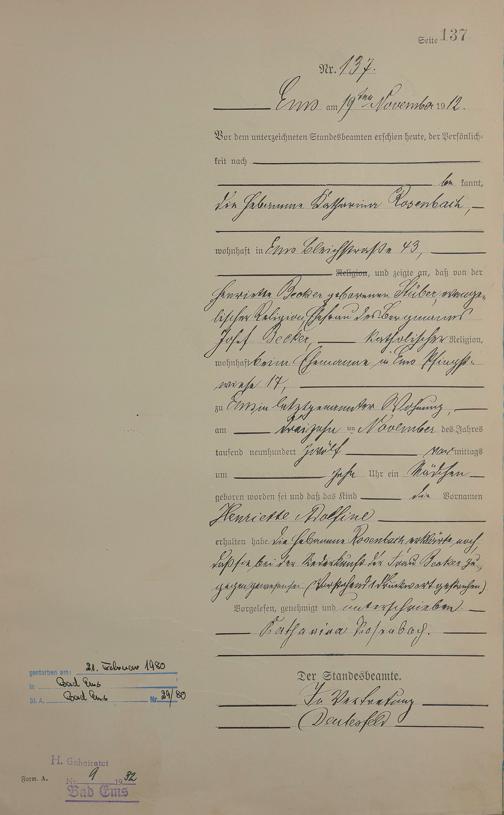 Seite 137
Nr. 137.
Ems am 19ten November 1912.
Vor dem unterzeichneten Standesbeamten erschien heute, der Persönlich-
keit nach
be kannt,
die Hebamme Katharina Rosenbach,
wohnhaft in Ems Bleichstraße 43,
Religion, und zeigte an, daß von der
Henriette Becker geborenen Stüber, evange-
lischer Religion, Ehefrau des Bergmanns
Josef Becker, katholischer Religion,
wohnhaft beim Ehemanne in Ems Pfingst-
wiese 17,
zu Ems in letztgenannter Wohnung,
am dreizehn ten November des Jahres
tausend neunhundert zwölf vor mittags
um zehn Uhr ein Mädchen
geboren worden sei und daß das Kind die Vornamen
Henriette Adolfine
erhalten habe. Die Hebamme Rosenbach erklärte noch,
daß sie bei der Niederkunft der Frau Becker zu-
gegen gewesen sei. (Vorstehend 1 Druckwort gestrichen)
Vorgelesen, genehmigt und unterschrieben
Katharina Rosenbach.
Der Standesbeamte.
In Vertretung
gestorben am: 21. Februar 1980
in Bad Ems
St. A. Bad Ems Nr. 29/80
H. Geheiratet
Nr. 9 1932
Bad Ems
Form. A.